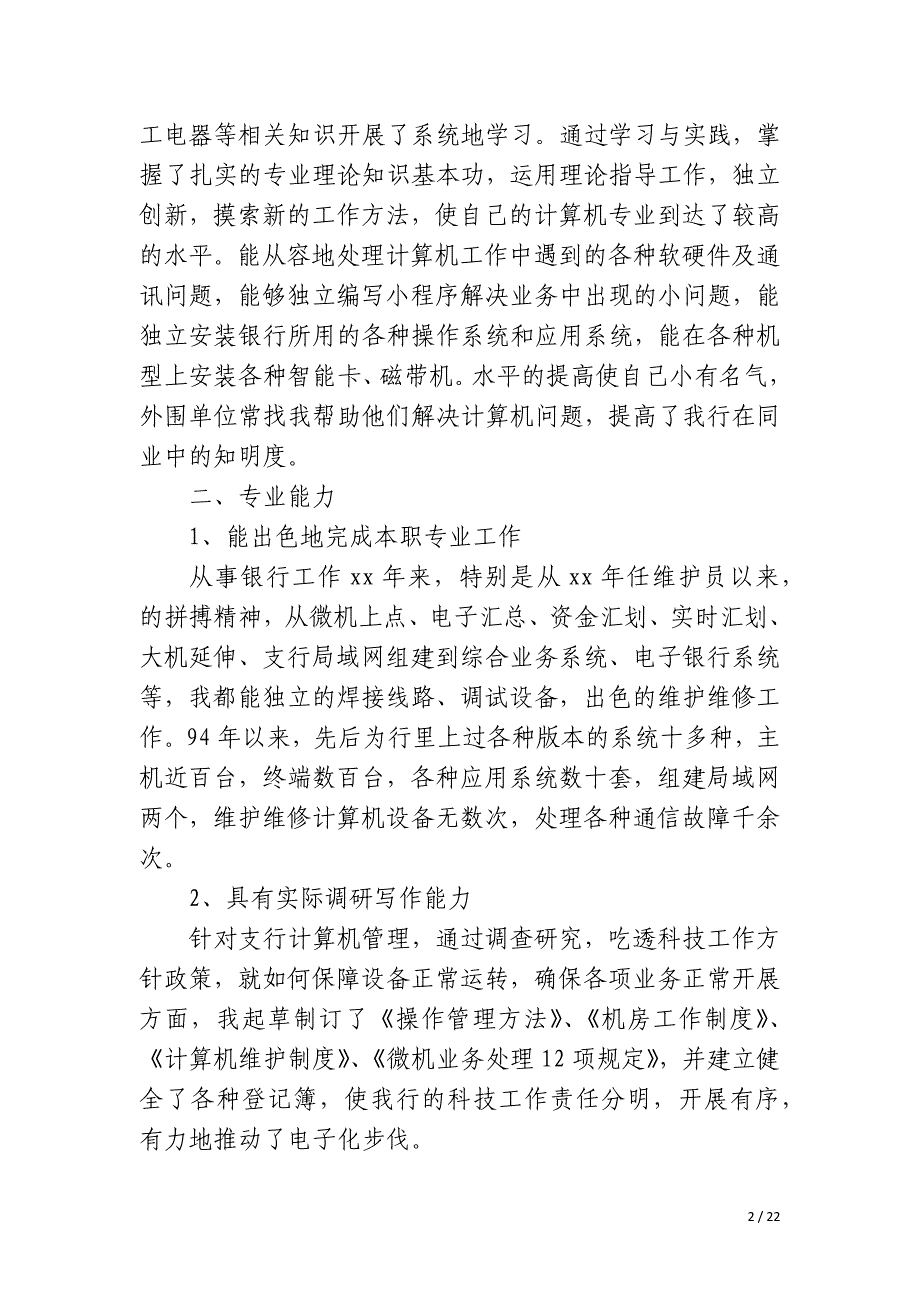 工电器等相关知识开展了系统地学习。通过学习与实践，掌
握了扎实的专业理论知识基本功，运用理论指导工作，独立
创新，摸索新的工作方法，使自己的计算机专业到达了较高
的水平。能从容地处理计算机工作中遇到的各种软硬件及通
讯问题，能够独立编写小程序解决业务中出现的小问题，能
独立安装银行所用的各种操作系统和应用系统，能在各种机
型上安装各种智能卡、磁带机。水平的提高使自己小有名气，
外围单位常找我帮助他们解决计算机问题，提高了我行在同
业中的知明度。
二、专业能力
1、能出色地完成本职专业工作
从事银行工作 xx 年来，特别是从 xx 年任维护员以来，
的拼搏精神，从微机上点、电子汇总、资金汇划、实时汇划、
大机延伸、支行局域网组建到综合业务系统、电子银行系统
等，我都能独立的焊接线路、调试设备，出色的维护维修工
作。94 年以来，先后为行里上过各种版本的系统十多种，主
机近百台，终端数百台，各种应用系统数十套，组建局域网
两个，维护维修计算机设备无数次，处理各种通信故障千余
次。
2、具有实际调研写作能力
针对支行计算机管理，通过调查研究，吃透科技工作方
针政策，就如何保障设备正常运转，确保各项业务正常开展
方面，我起草制订了《操作管理方法》、《机房工作制度》、
《计算机维护制度》、《微机业务处理 12 项规定》，并建立健
全了各种登记簿，使我行的科技工作责任分明，开展有序，
有力地推动了电子化步伐。
2 / 22